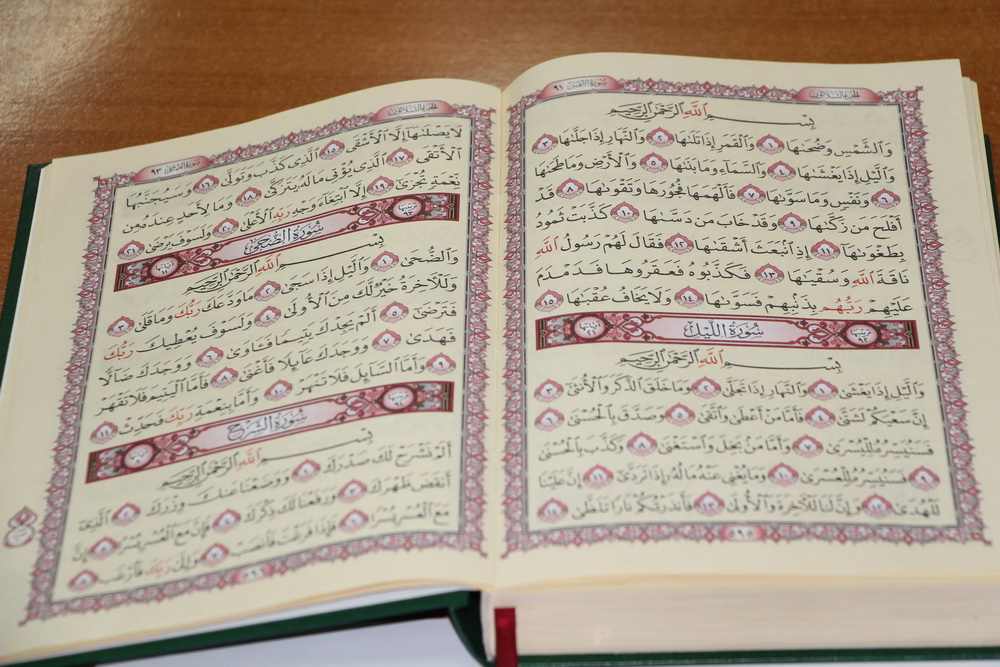 سُورَةُ الشَّمْسِ ٩١
الجزء الثلاثون
بِسْمِ اللَّهِ الرَّحْمَٰنِ الرَّحِيمِ
وَالشَّمْسِ وَضُحَىٰهَا ١ وَالْقَمَرِ إِذَا تَلَىٰهَا ٢ وَالنَّهَارِ إِذَا جَلَّىٰهَا ٣
وَالَّيْلِ إِذَا يَغْشَىٰهَا ٤ وَالسَّمَآءِ وَمَا بَنَىٰهَا ٥ وَالْأَرْضِ وَمَا طَحَىٰهَا
٦ وَنَفْسٍ وَمَا سَوَّىٰهَا ٧ فَأَلْهَمَهَا فُجُورَهَا وَتَقْوَىٰهَا ٨ قَدْ
أَفْلَحَ مَن زَكَّىٰهَا ٩ وَقَدْ خَابَ مَن دَسَّىٰهَا ١٠ كَذَّبَتْ ثَمُودُ
بِطَغْوَىٰهَآ ١١ إِذِ انۢبَعَثَ أَشْقَىٰهَا ١٢ فَقَالَ لَهُمْ رَسُولُ اللَّهِ
نَاقَةَ اللَّهِ وَسُقْيَٰهَا ١٣ فَكَذَّبُوهُ فَعَقَرُوهَا فَدَمْدَمَ
عَلَيْهِمْ رَبُّهُم بِذَنۢبِهِمْ فَسَوَّىٰهَا ١٤ وَلَا يَخَافُ عُقْبَٰهَا ١٥
ترتيبها ٩٢ سُورَةُ اللَّيْلِ آياتها ٢١
بِسْمِ اللَّهِ الرَّحْمَٰنِ الرَّحِيمِ
وَالَّيْلِ إِذَا يَغْشَىٰ ١ وَالنَّهَارِ إِذَا تَجَلَّىٰ ٢ وَمَا خَلَقَ الذَّكَرَ وَالْأُنثَىٰٓ ٣
إِنَّ سَعْيَكُمْ لَشَتَّىٰ ٤ فَأَمَّا مَنْ أَعْطَىٰ وَاتَّقَىٰ ٥ وَصَدَّقَ بِالْحُسْنَىٰ ٦
فَسَنُيَسِّرُهُۥ لِلْيُسْرَىٰ ٧ وَأَمَّا مَنۢ بَخِلَ وَاسْتَغْنَىٰ ٨ وَكَذَّبَ بِالْحُسْنَىٰ
٩ فَسَنُيَسِّرُهُۥ لِلْعُسْرَىٰ ١٠ وَمَا يُغْنِي عَنْهُ مَالُهُۥٓ إِذَا تَرَدَّىٰٓ ١١ إِنَّ عَلَيْنَا
لَلْهُدَىٰ ١٢ وَإِنَّ لَنَا لَلْءَاخِرَةَ وَالْأُولَىٰ ١٣ فَأَنذَرْتُكُمْ نَارًا تَلَظَّىٰ ١٤
٥٩٥
سُورَةُ الضُّحَىٰ ٩٣
الجزء الثلاثون
لَا يَصْلَىٰهَآ إِلَّا الْأَشْقَى ١٥ الَّذِي كَذَّبَ وَتَوَلَّىٰ ١٦ وَسَيُجَنَّبُهَا
الْأَتْقَى ١٧ الَّذِي يُؤْتِي مَالَهُۥ يَتَزَكَّىٰ ١٨ وَمَا لِأَحَدٍ عِندَهُۥ مِن
نِّعْمَةٍ تُجْزَىٰٓ ١٩ إِلَّا ابْتِغَآءَ وَجْهِ رَبِّهِ الْأَعْلَىٰ ٢٠ وَلَسَوْفَ يَرْضَىٰ ٢١
ترتيبها ٩٣ سُورَةُ الضُّحَىٰ آياتها ١١
بِسْمِ اللَّهِ الرَّحْمَٰنِ الرَّحِيمِ
وَالضُّحَىٰ ١ وَالَّيْلِ إِذَا سَجَىٰ ٢ مَا وَدَّعَكَ رَبُّكَ وَمَا قَلَىٰ ٣
وَلَلْءَاخِرَةُ خَيْرٌ لَّكَ مِنَ الْأُولَىٰ ٤ وَلَسَوْفَ يُعْطِيكَ رَبُّكَ
فَتَرْضَىٰٓ ٥ أَلَمْ يَجِدْكَ يَتِيمًا فَـَٔاوَىٰ ٦ وَوَجَدَكَ ضَآلًّا
فَهَدَىٰ ٧ وَوَجَدَكَ عَآئِلًا فَأَغْنَىٰ ٨ فَأَمَّا الْيَتِيمَ فَلَا تَقْهَرْ
٩ وَأَمَّا السَّآئِلَ فَلَا تَنْهَرْ ١٠ وَأَمَّا بِنِعْمَةِ رَبِّكَ فَحَدِّثْ ١١
سُورَةُ الشَّرْحِ
بِسْمِ اللَّهِ الرَّحْمَٰنِ الرَّحِيمِ
أَلَمْ نَشْرَحْ لَكَ صَدْرَكَ ١ وَوَضَعْنَا عَنكَ وِزْرَكَ ٢ الَّذِيٓ
أَنقَضَ ظَهْرَكَ ٣ وَرَفَعْنَا لَكَ ذِكْرَكَ ٤ فَإِنَّ مَعَ الْعُسْرِ يُسْرًا ٥ إِنَّ
مَعَ الْعُسْرِ يُسْرًا ٦ فَإِذَا فَرَغْتَ فَانصَبْ ٧ وَإِلَىٰ رَبِّكَ فَارْغَب ٨
٥٩٦